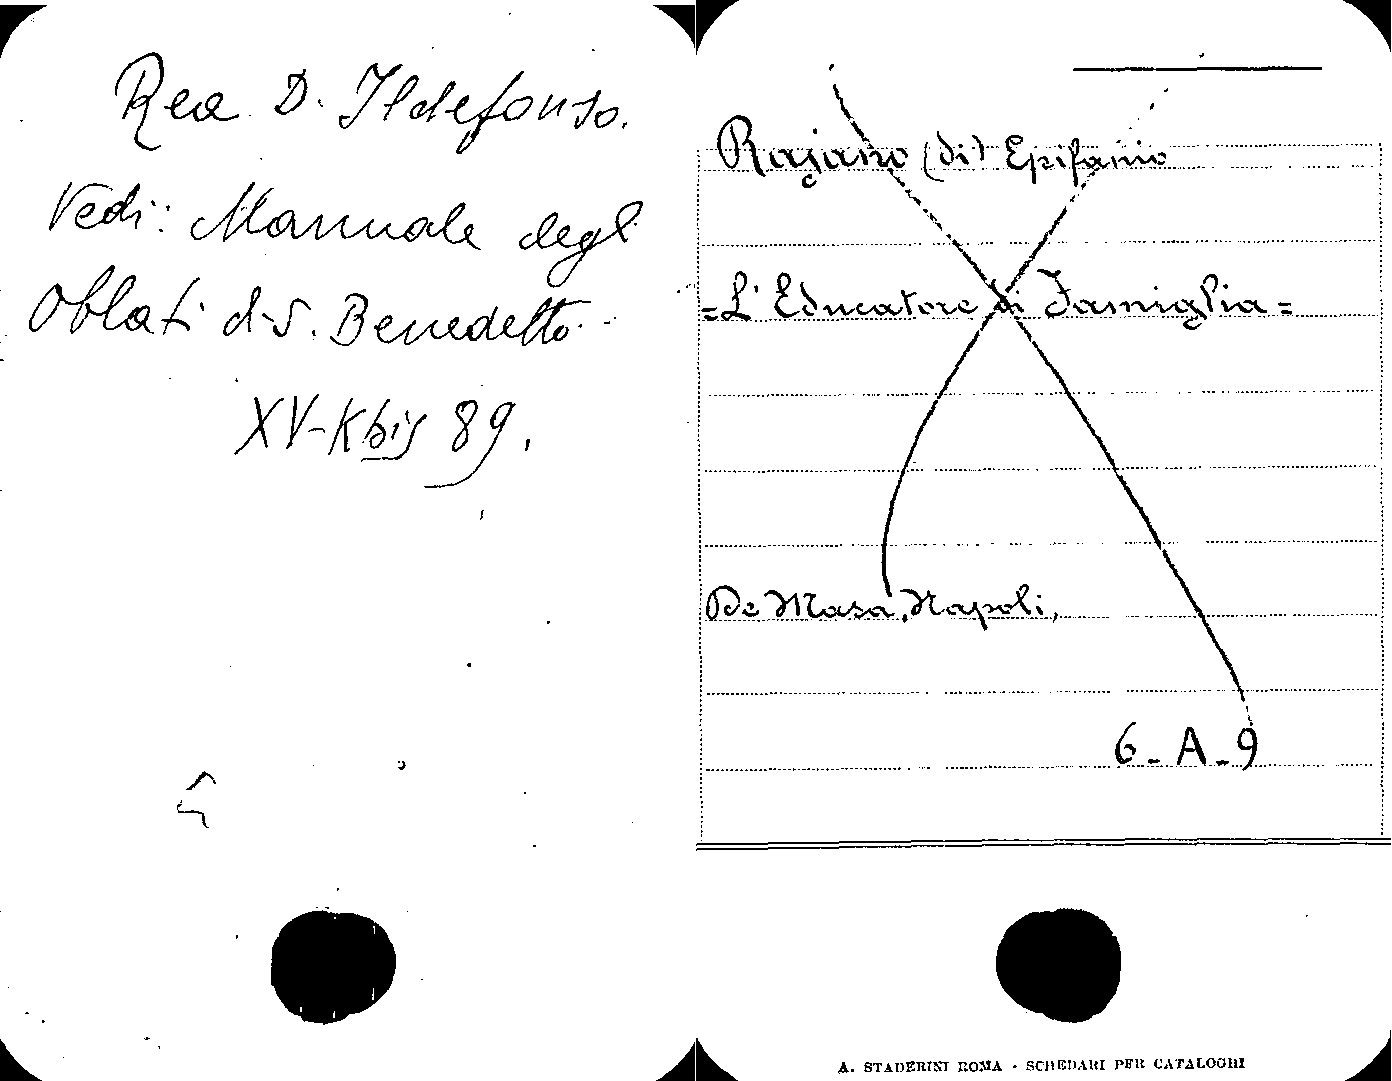 Rea D. Ildefonso.
Vedi: Manuale degl
Oblati di S. Benedetto
XV-K bis 89.
Rajano (di) Epifanio
=L'Educatore di Famiglia=
De Masa, Napoli,
6-A-9
A. STADERINI ROMA - SCHEDARI PER CATALOGHI